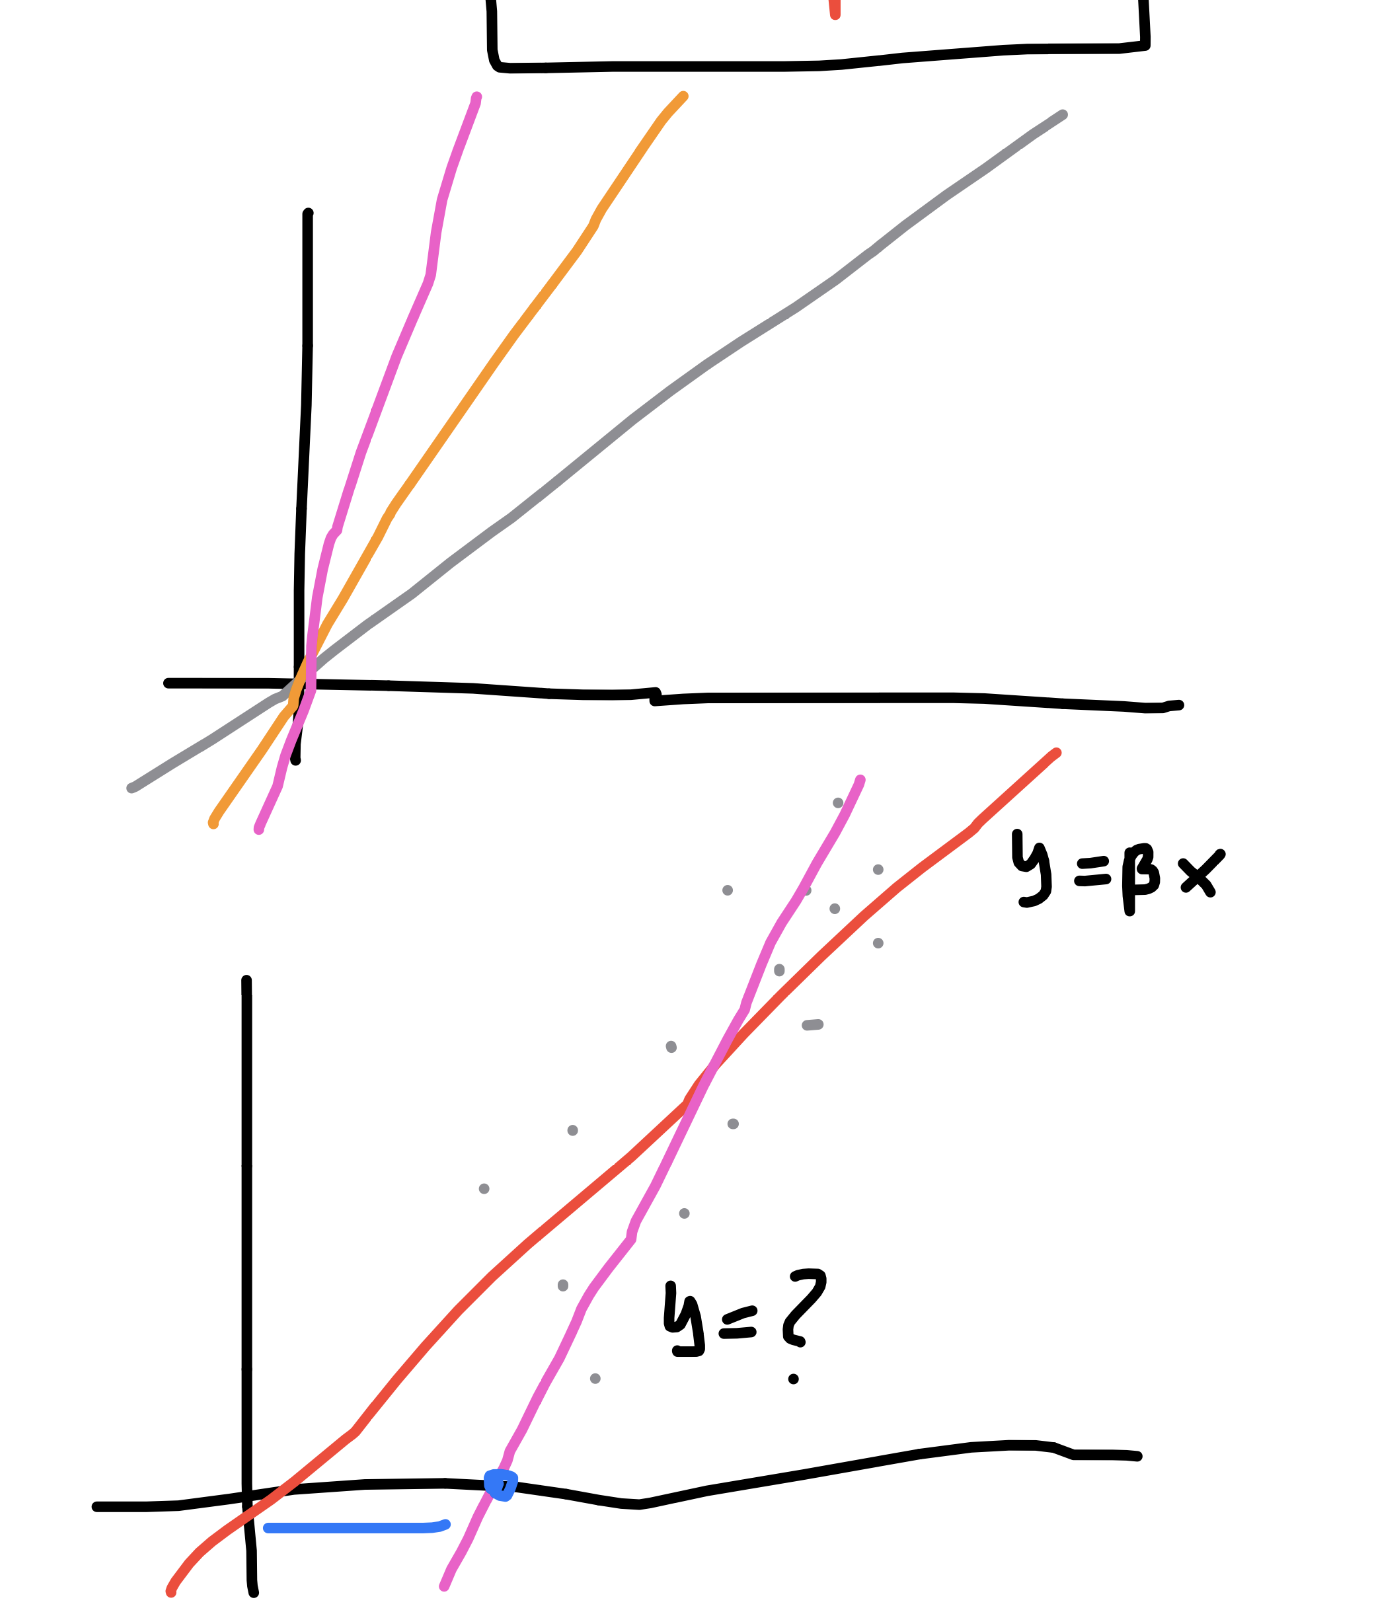 y = βx
y = ?